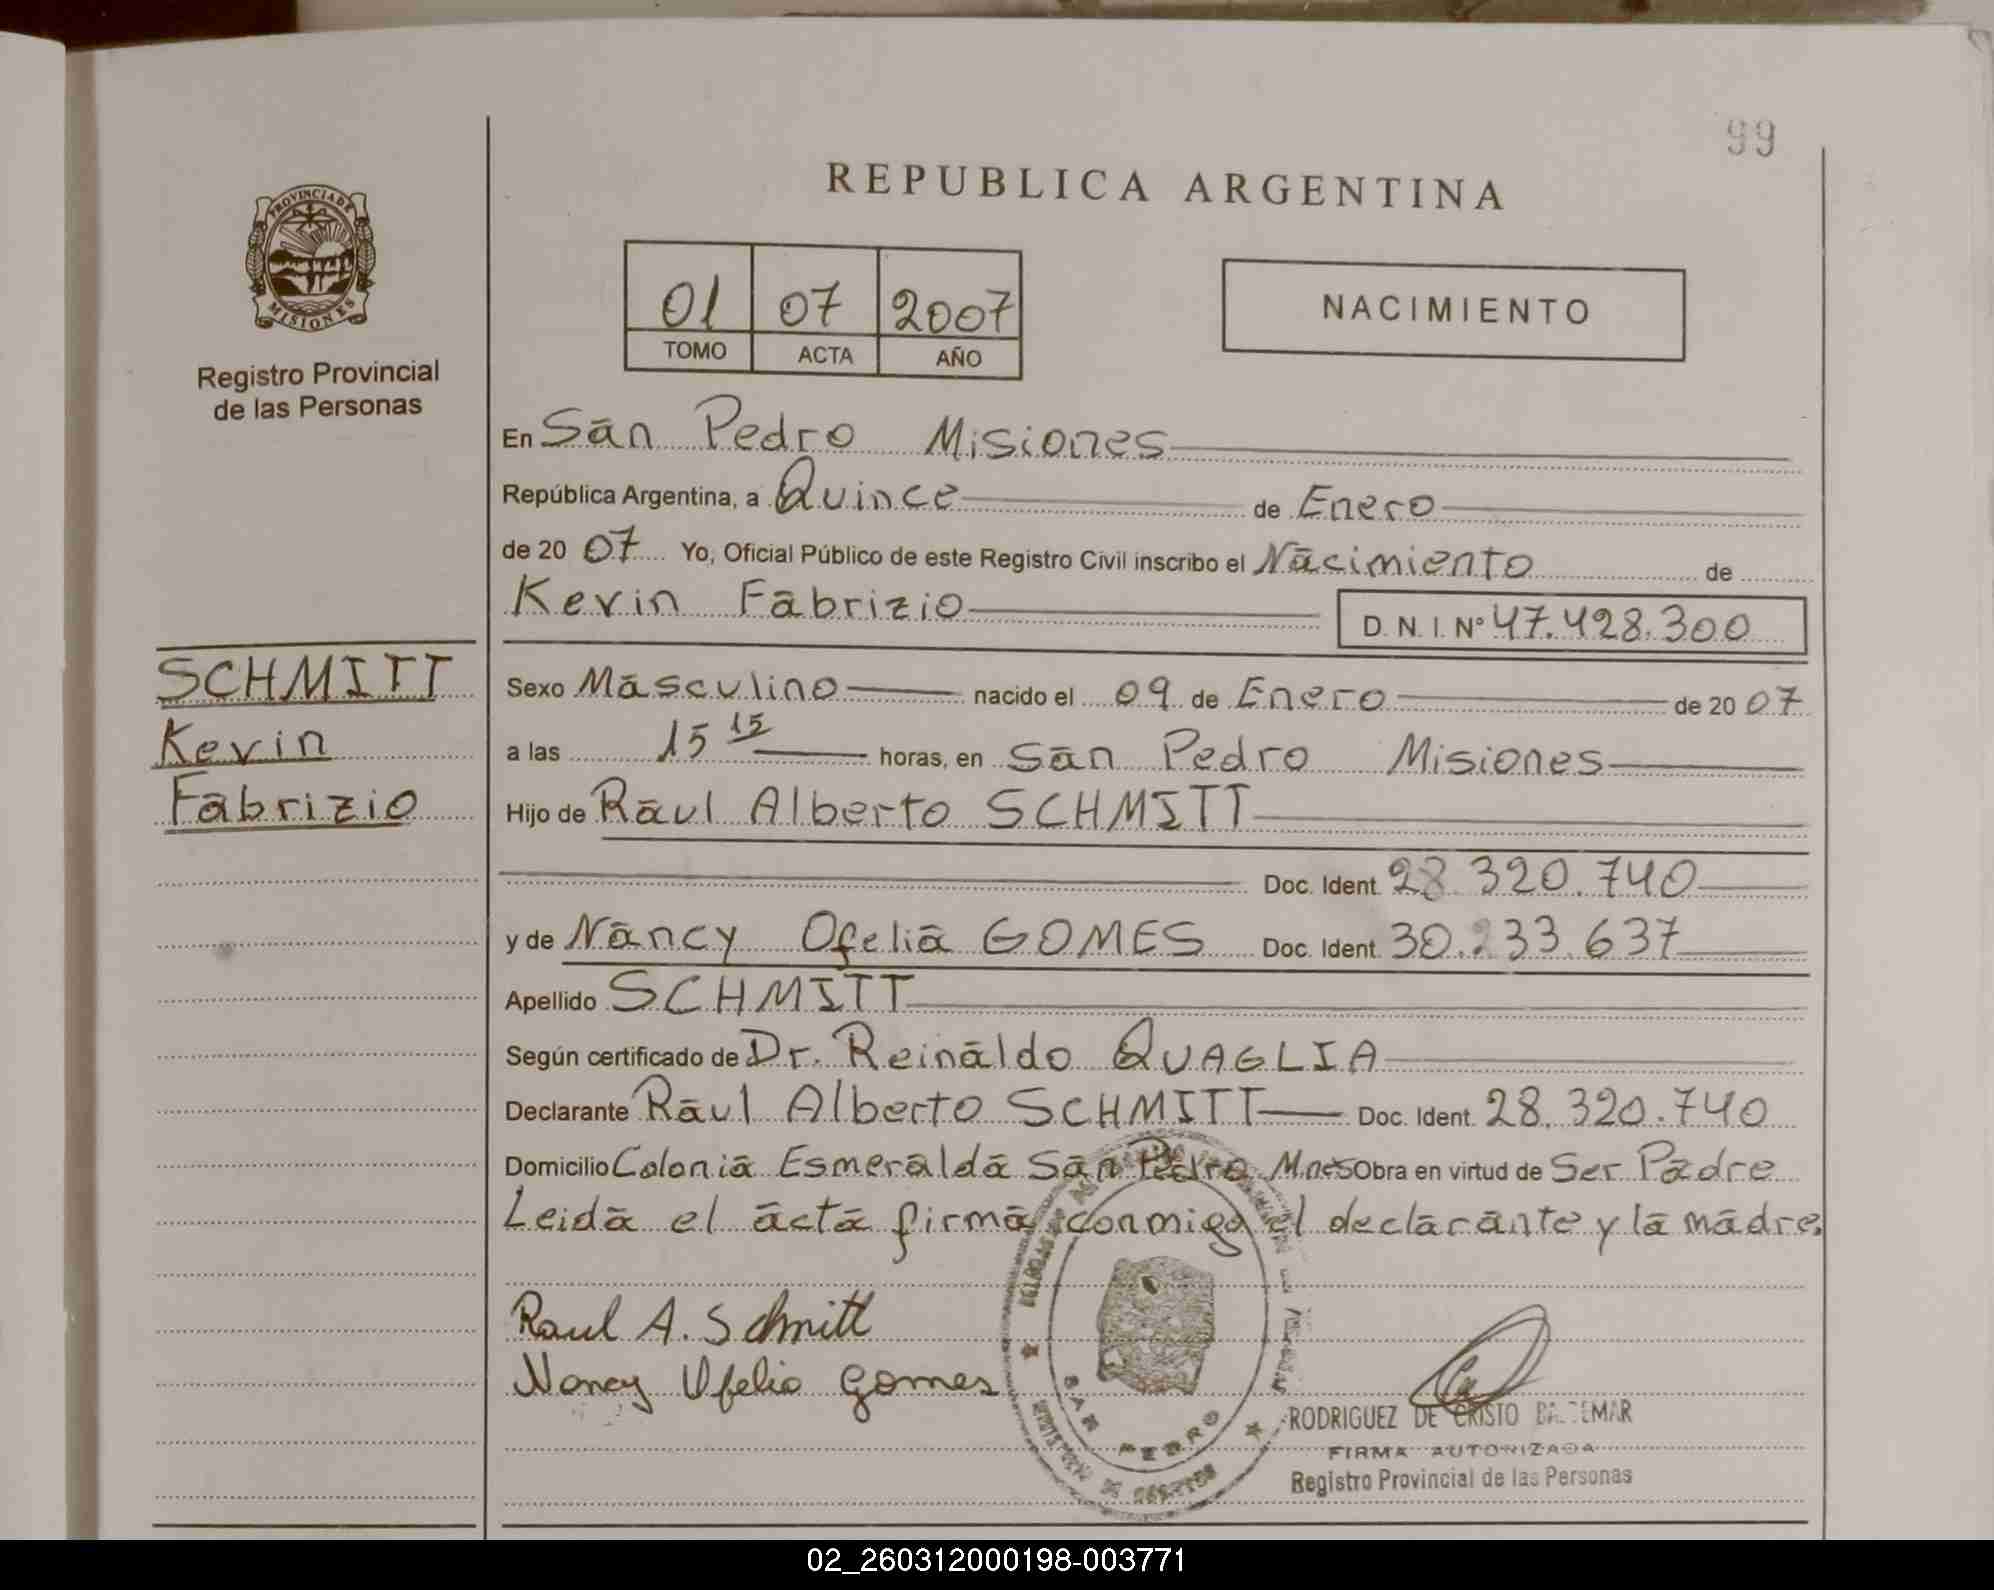 99
PROVINCIA DE
MISIONES
Registro Provincial
de las Personas
REPUBLICA ARGENTINA
01 07 2007
TOMO ACTA AÑO
NACIMIENTO
En San Pedro Misiones
República Argentina, a Quince de Enero
de 20 07 Yo, Oficial Público de este Registro Civil inscribo el Nacimiento de
Kevin Fabrizio D. N. I. Nº 47.428.300
SCHMITT
Kevin
Fabrizio
Sexo Masculino nacido el 09 de Enero de 20 07
a las 15 15 horas, en San Pedro Misiones
Hijo de Raul Alberto SCHMITT
Doc. Ident. 28.320.740
y de Nancy Ofelia GOMES Doc. Ident. 30.233.637
Apellido SCHMITT
Según certificado de Dr. Reinaldo QUAGLIA
Declarante Raul Alberto SCHMITT Doc. Ident. 28.320.740
Domicilio Colonia Esmeralda San Pedro Mnes Obra en virtud de Ser Padre
Leida el acta firma conmigo el declarante y la madre.
Raul A. Schmitt
Nancy Ofelia Gomes
SAN PEDRO
RODRIGUEZ DE CRISTO
FIRMA AUTORIZADA
Registro Provincial de las Personas
02_260312000198-003771